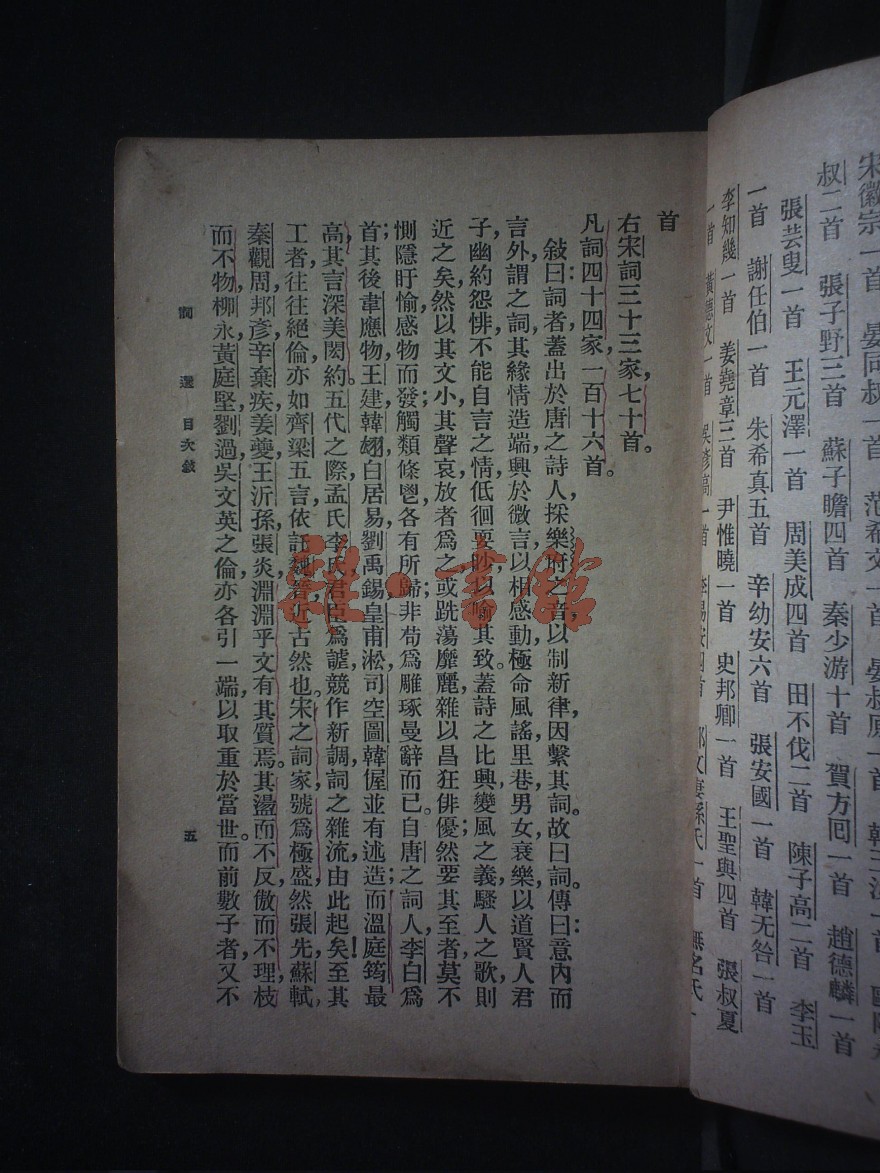 宋徽宗一首　晏同叔一首　范希文一首　晏叔原一首　韓三
叔二首　張子野三首　蘇子瞻四首　秦少游十首　賀方回一首　趙德麟一首
張芸叟一首　王元澤一首　周美成四首　田不伐二首　陳子高二首　李玉
一首　謝任伯一首　朱希真五首　辛幼安六首　張安國一首　韓无咎一首
李知幾一首　姜堯章三首　尹惟曉一首　史邦卿一首　王聖與四首　張叔夏
一首　黃德文一首　吳彥高一首　李易安四首　鄭文妻孫氏一首　無名氏一
首
右宋詞三十三家，七十首。
凡詞四十四家，一百十六首。
敍曰：詞者，蓋出於唐之詩人，採樂府之音，以制新律，因繫其詞。故曰詞。傳曰：意內而
言外謂之詞，其緣情造端，興於微言，以相感動，極命風謠里巷男女哀樂，以道賢人君
子幽約怨悱不能自言之情，低徊要眇，以喻其致。蓋詩之比興，變風之義，騷人之歌，則
近之矣。然以其文小，其聲哀，放者爲之，或跌蕩靡麗，雜以昌狂俳優；然要其至者，莫不
惻隱盱愉，感物而發；觸類條鬯，各有所歸，非苟爲雕琢曼辭而已。自唐之詞人，李白爲
首；其後韋應物，王建，韓翃，白居易，劉禹錫，皇甫淞，司空圖，韓偓並有述造，而溫庭筠最
高，其言深美閎約。五代之際，孟氏李氏君臣爲謔，競作新調，詞之雜流，由此起矣！至其
工者，往往絕倫，亦如齊梁五言，依託魏晉，近古然也。宋之詞家，號爲極盛，然張先蘇軾
秦觀，周邦彥，辛棄疾，姜夔，王沂孫，張炎，淵淵乎文有其質焉。其盪而不反，傲而不理，枝
而不物，柳永，黃庭堅，劉過，吳文英之倫，亦各引一端，以取重於當世。而前數子者，又不
詞選　目次敍　五
雜·書館